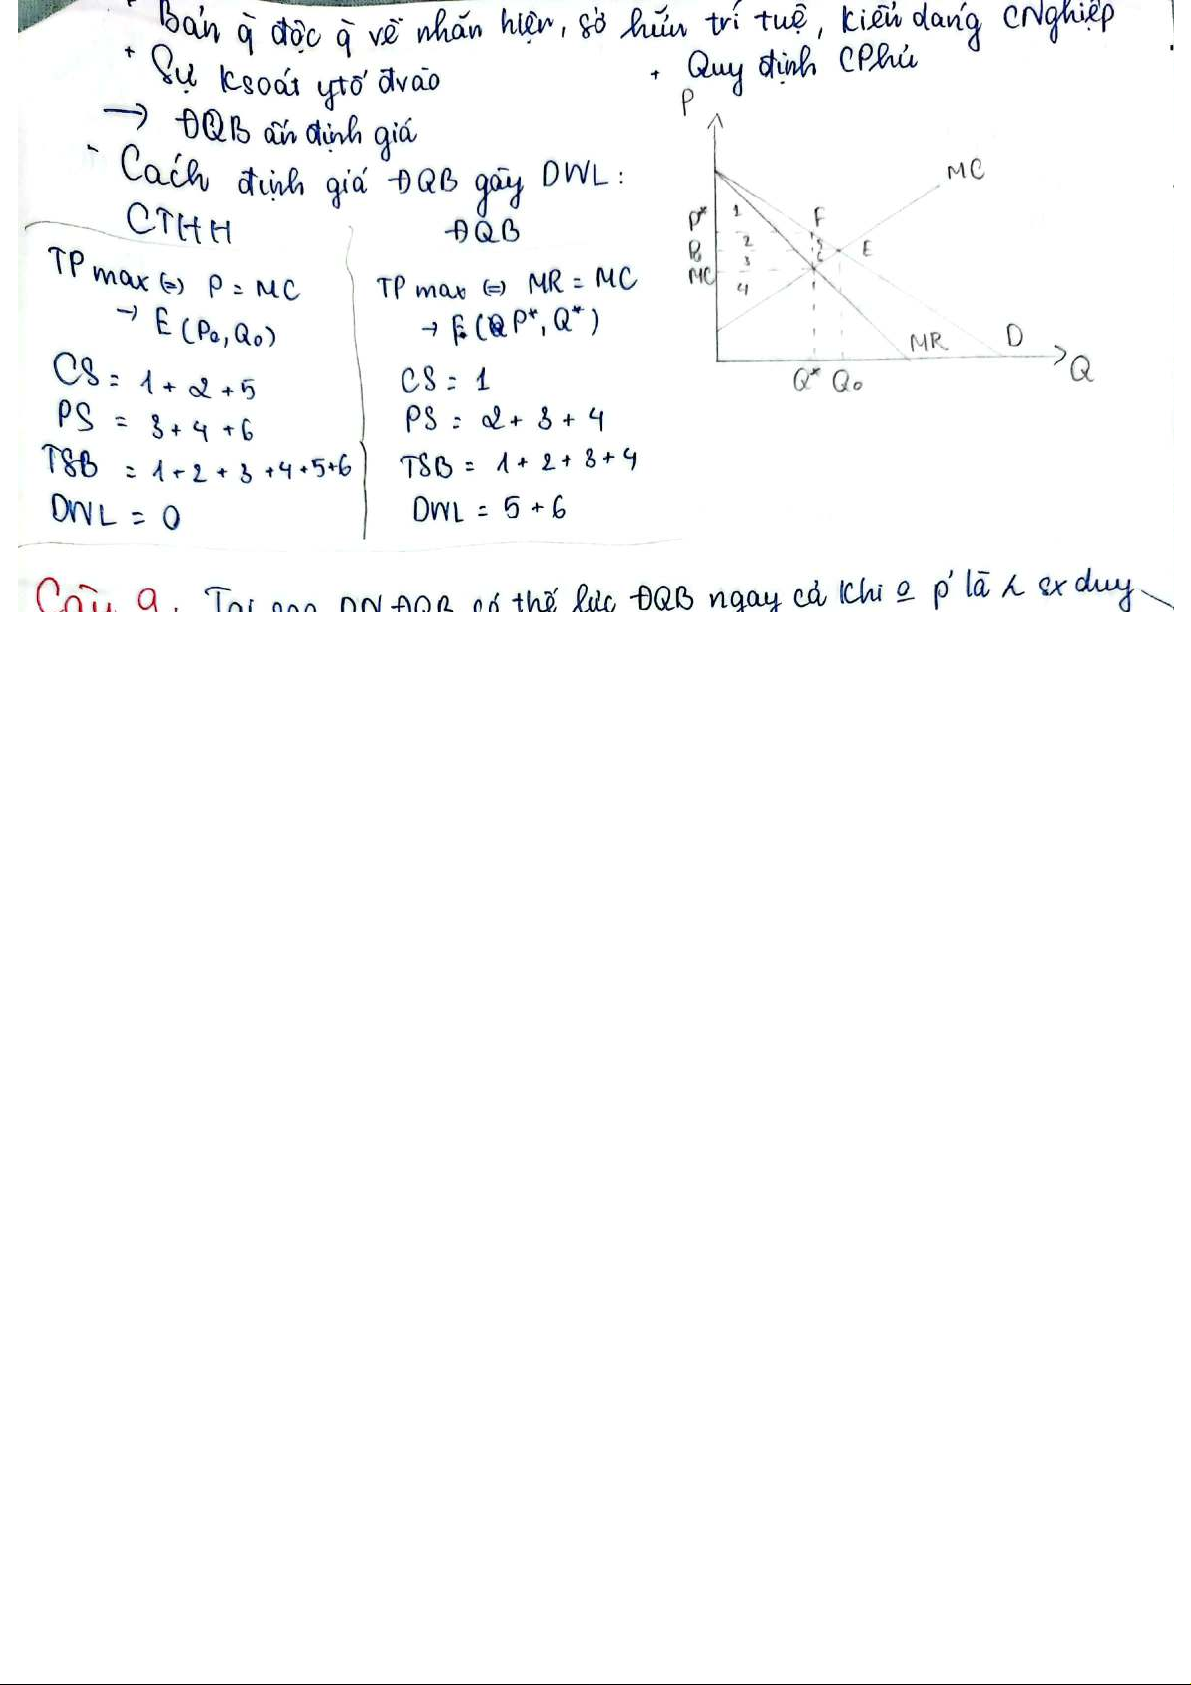 Bản q̀ độc q̀ về nhãn hiệu, sở hữu trí tuệ, kiểu dáng CNghiệp
+ Sự ksoát ytố đvào
+ Quy định CPhủ
→ ĐQB ấn định giá
- Cách định giá ĐQB gây DWL:
CTHH
ĐQB
TP max (=) P = MC
→ E (P₀, Q₀)
CS = 1 + 2 + 5
PS = 3 + 4 + 6
TSB = 1 + 2 + 3 + 4 + 5 + 6
DWL = 0
TP max (=) MR = MC
→ F (P*, Q*)
CS = 1
PS = 2 + 3 + 4
TSB = 1 + 2 + 3 + 4
DWL = 5 + 6
P
MC
P*
1
F
P₀
2
5
E
3
6
MC
4
MR
D
Q* Q₀
Q
Câu 9. Tại sao DN ĐQB có thế lực ĐQB ngay cả khi o p' là sx duy